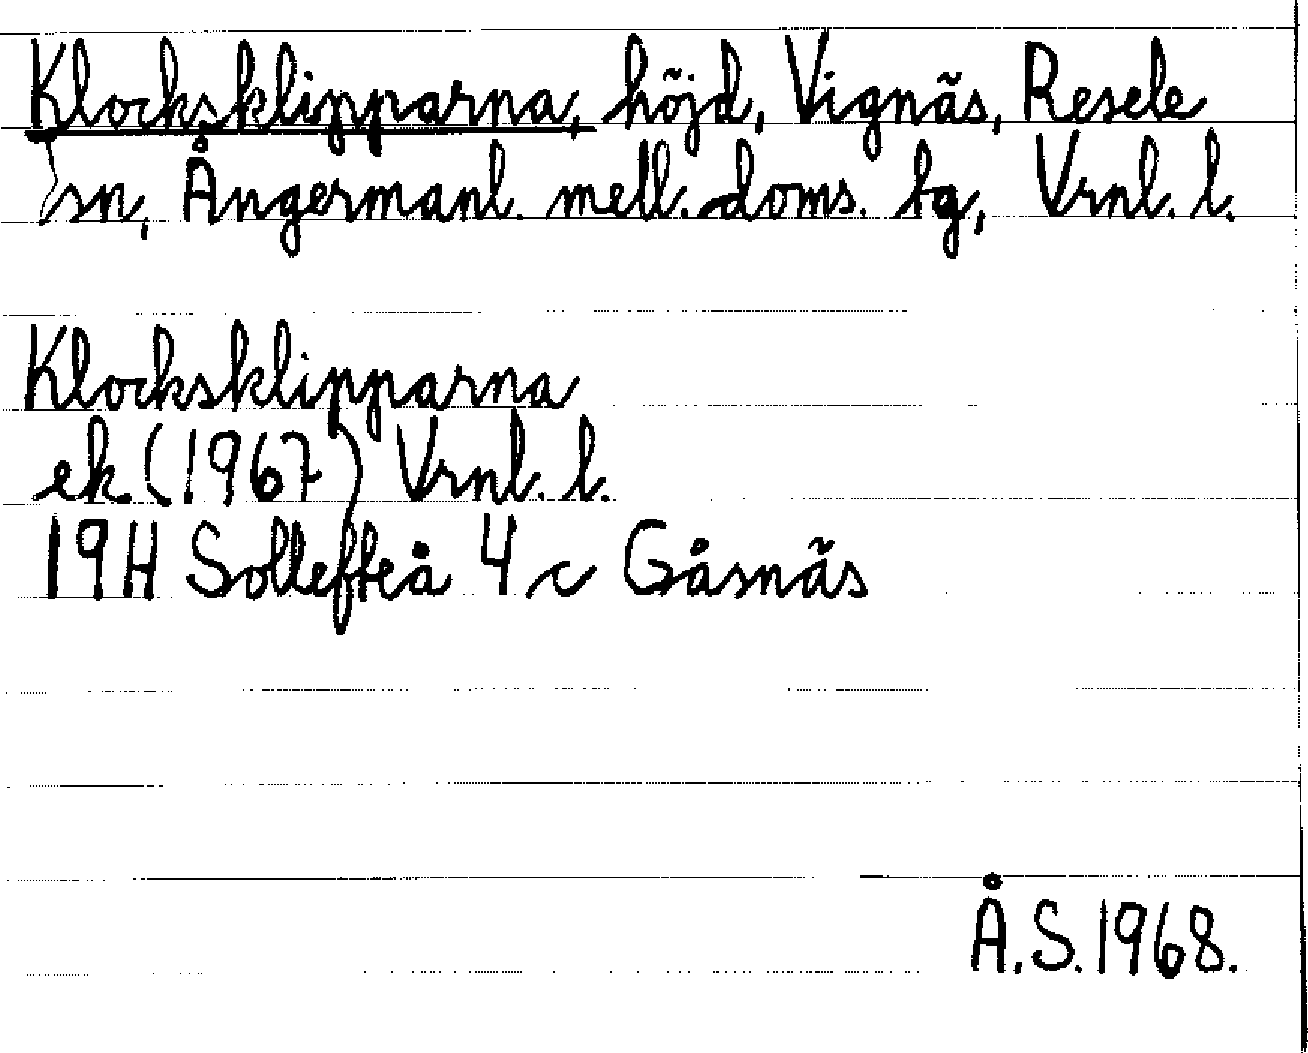 Klocksklipparna, höjd, Vignäs, Resele
sn, Ångermanl. mell. doms. tg, Vrnl. l.
Klocksklipparna
ek. (1967) Vrnl. l.
19H Sollefteå 4 c Gåsnäs
Å.S. 1968.